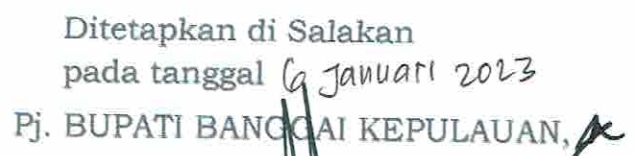 Ditetapkan di Salakan
pada tanggal 6 Januari 2023
Pj. BUPATI BANGGAI KEPULAUAN,